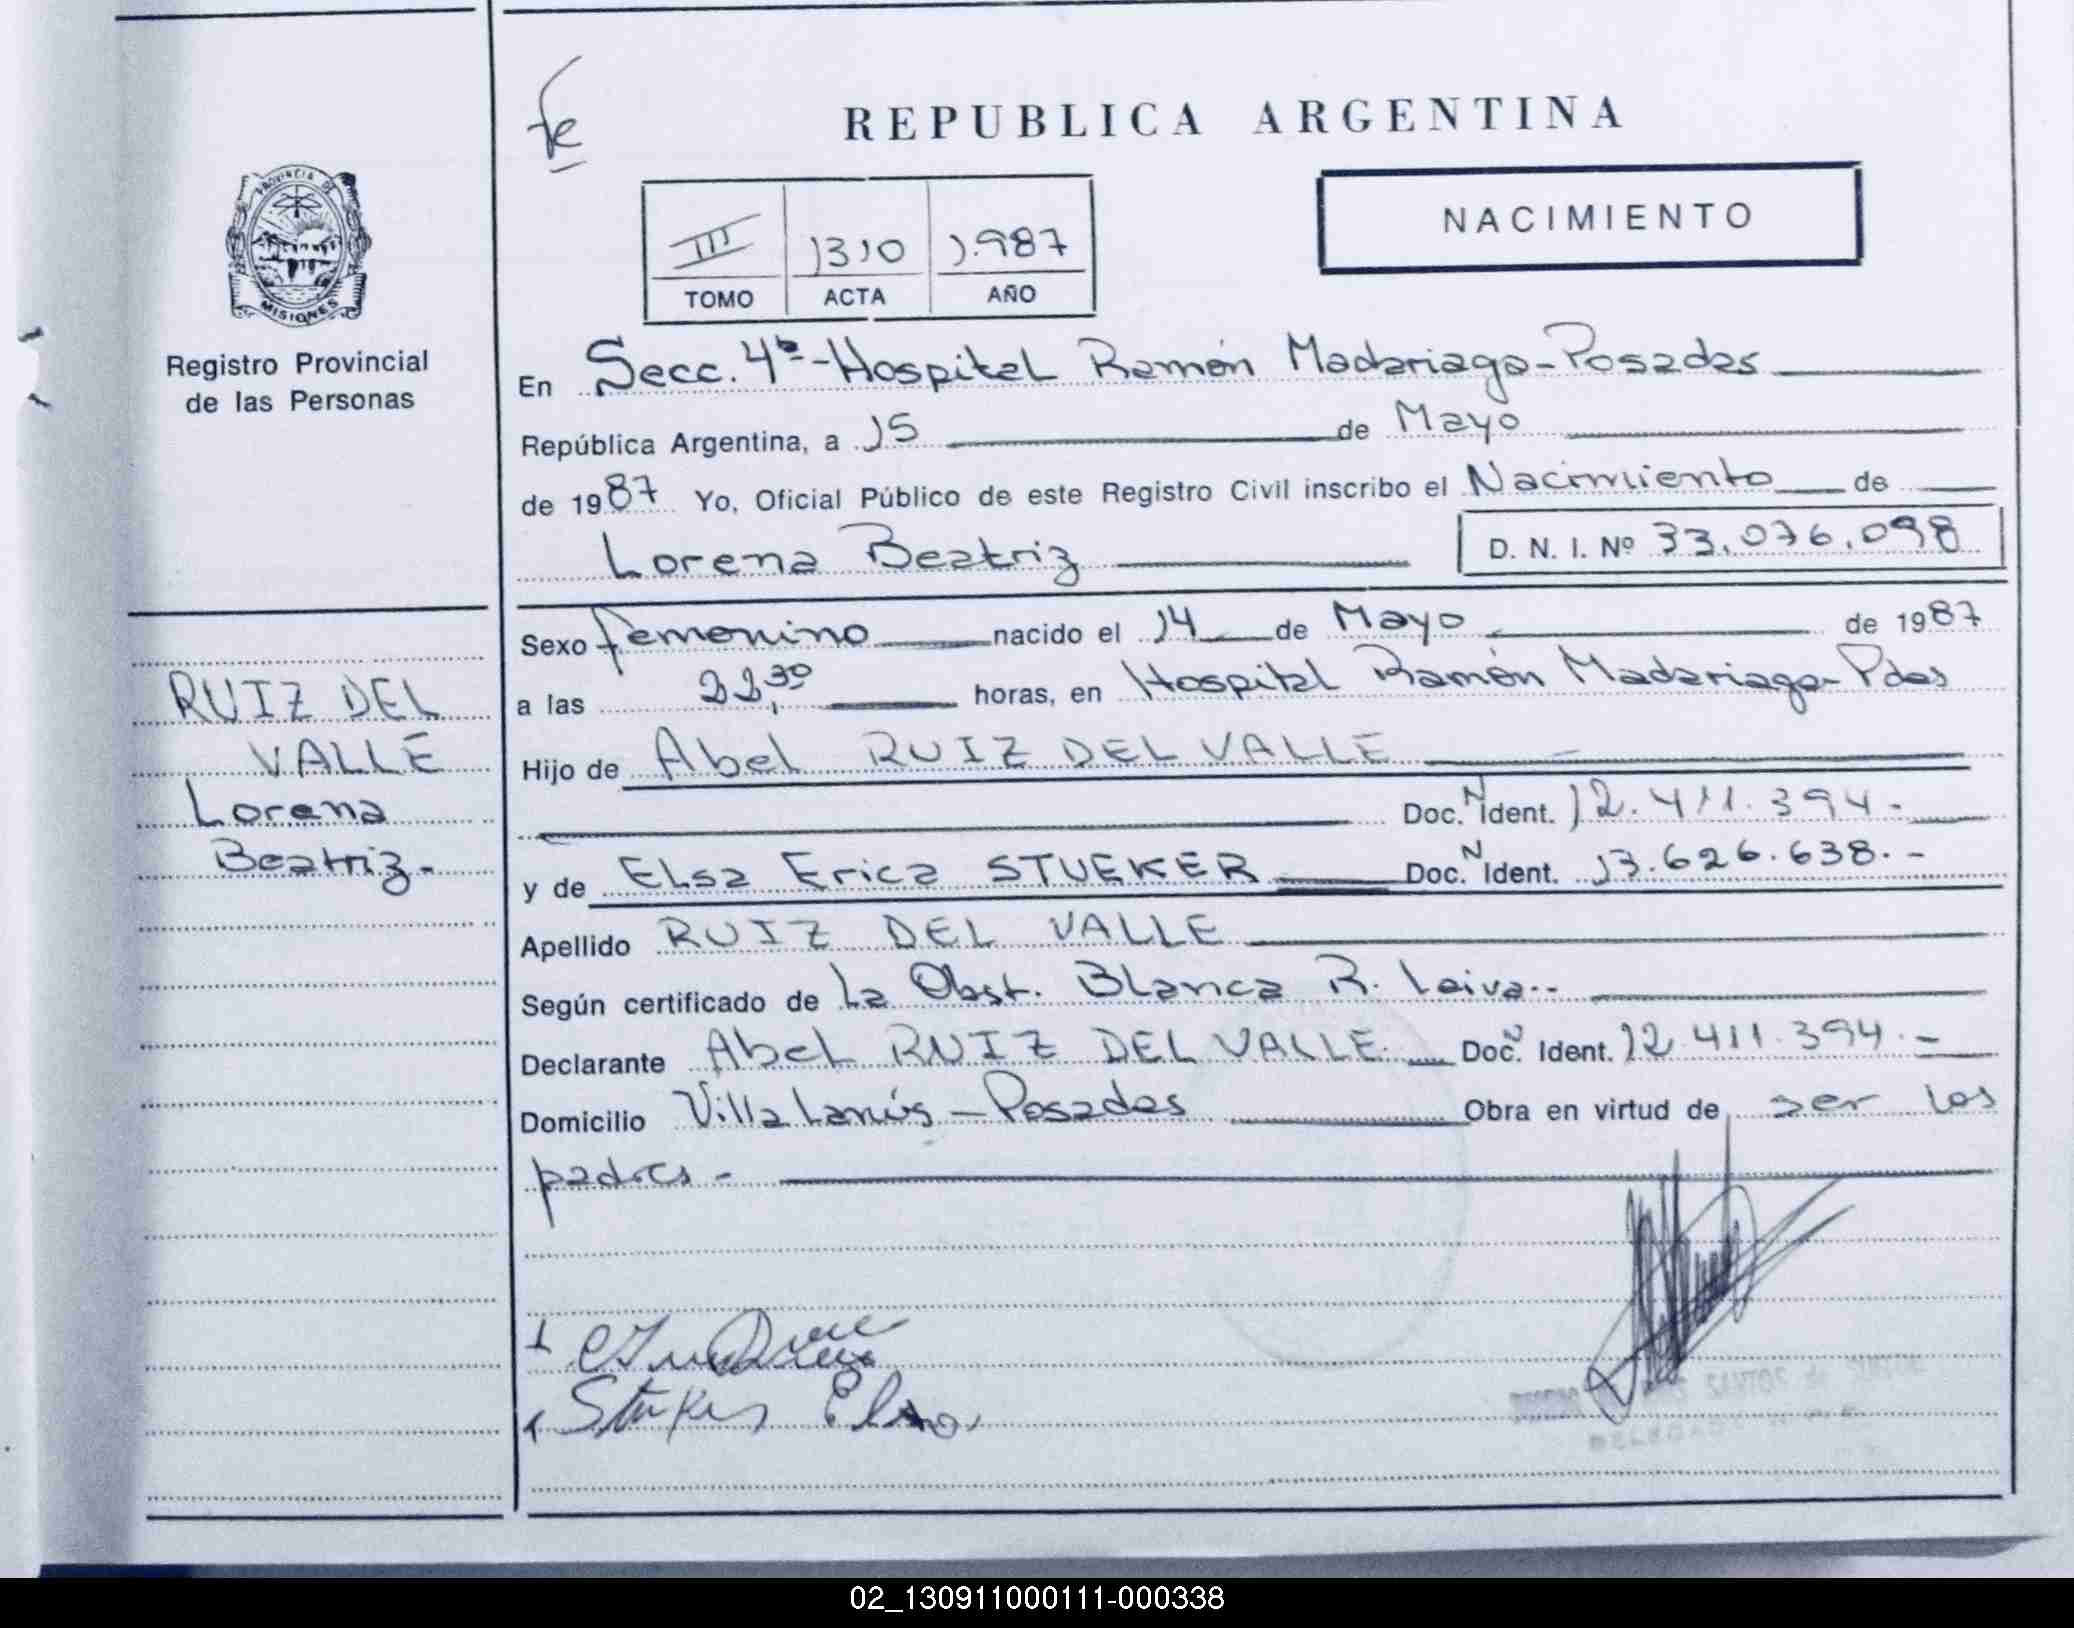 fe
REPUBLICA ARGENTINA
NACIMIENTO
III 1310 1.987
TOMO ACTA AÑO
PROVINCIA DE
MISIONES
Registro Provincial
de las Personas
En Secc. 4ª - Hospital Ramón Madariaga - Posadas
República Argentina, a 15 de Mayo
de 1987 Yo, Oficial Público de este Registro Civil inscribo el Nacimiento de
Lorena Beatriz D. N. I. Nº 33.076.098
Sexo femenino nacido el 14 de Mayo de 1987
a las 22,30 horas, en Hospital Ramón Madariaga - Pdas
Hijo de Abel RUIZ DEL VALLE
Doc. N Ident. 12.411.394.-
y de Elsa Erica STUEKER Doc. N Ident. 13.626.638.-
Apellido RUIZ DEL VALLE
Según certificado de La Obst. Blanca R. Leiva.-
Declarante Abel RUIZ DEL VALLE. Doc. N Ident. 12.411.394.-
Domicilio Villa Lanús - Posadas Obra en virtud de ser los
padres -
RUIZ DEL
VALLE
Lorena
Beatriz.-
SANTOS de
02_130911000111-000338